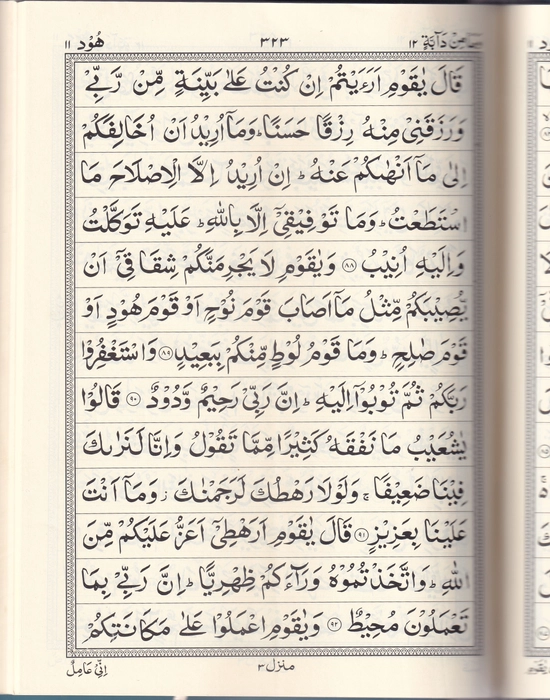 وما من دآبة ١٢
٣٢٣
هود ١١
قَالَ يٰقَوْمِ اَرَءَيْتُمْ اِنْ كُنْتُ عَلٰى بَيِّنَةٍ مِّنْ رَّبِّيْ
وَرَزَقَنِيْ مِنْهُ رِزْقًا حَسَنًا ؕ وَمَاۤ اُرِيْدُ اَنْ اُخَالِفَكُمْ
اِلٰى مَاۤ اَنْهٰىكُمْ عَنْهُ ؕ اِنْ اُرِيْدُ اِلَّا الْاِصْلَاحَ مَا
اسْتَطَعْتُ ؕ وَمَا تَوْفِيْقِيْۤ اِلَّا بِاللّٰهِ ؕ عَلَيْهِ تَوَكَّلْتُ
وَاِلَيْهِ اُنِيْبُ ﴿٨٨﴾ وَيٰقَوْمِ لَا يَجْرِمَنَّكُمْ شِقَاقِيْۤ اَنْ
يُّصِيْبَكُمْ مِّثْلُ مَاۤ اَصَابَ قَوْمَ نُوْحٍ اَوْ قَوْمَ هُوْدٍ اَوْ
قَوْمَ صٰلِحٍ ؕ وَمَا قَوْمُ لُوْطٍ مِّنْكُمْ بِبَعِيْدٍ ﴿٨٩﴾ وَاسْتَغْفِرُوْا
رَبَّكُمْ ثُمَّ تُوْبُوْۤا اِلَيْهِ ؕ اِنَّ رَبِّيْ رَحِيْمٌ وَّدُوْدٌ ﴿٩٠﴾ قَالُوْا
يٰشُعَيْبُ مَا نَفْقَهُ كَثِيْرًا مِّمَّا تَقُوْلُ وَاِنَّا لَنَرٰىكَ
فِيْنَا ضَعِيْفًا ۚ وَلَوْلَا رَهْطُكَ لَرَجَمْنٰكَ ؗ وَمَاۤ اَنْتَ
عَلَيْنَا بِعَزِيْزٍ ﴿٩١﴾ قَالَ يٰقَوْمِ اَرَهْطِيْۤ اَعَزُّ عَلَيْكُمْ مِّنَ
اللّٰهِ ؕ وَاتَّخَذْتُمُوْهُ وَرَآءَكُمْ ظِهْرِيًّا ؕ اِنَّ رَبِّيْ بِمَا
تَعْمَلُوْنَ مُحِيْطٌ ﴿٩٢﴾ وَيٰقَوْمِ اعْمَلُوْا عَلٰى مَكَانَتِكُمْ
منزل ٣
اِنِّيْ عَامِلٌ